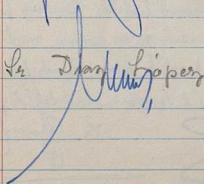 Sr Diaz López